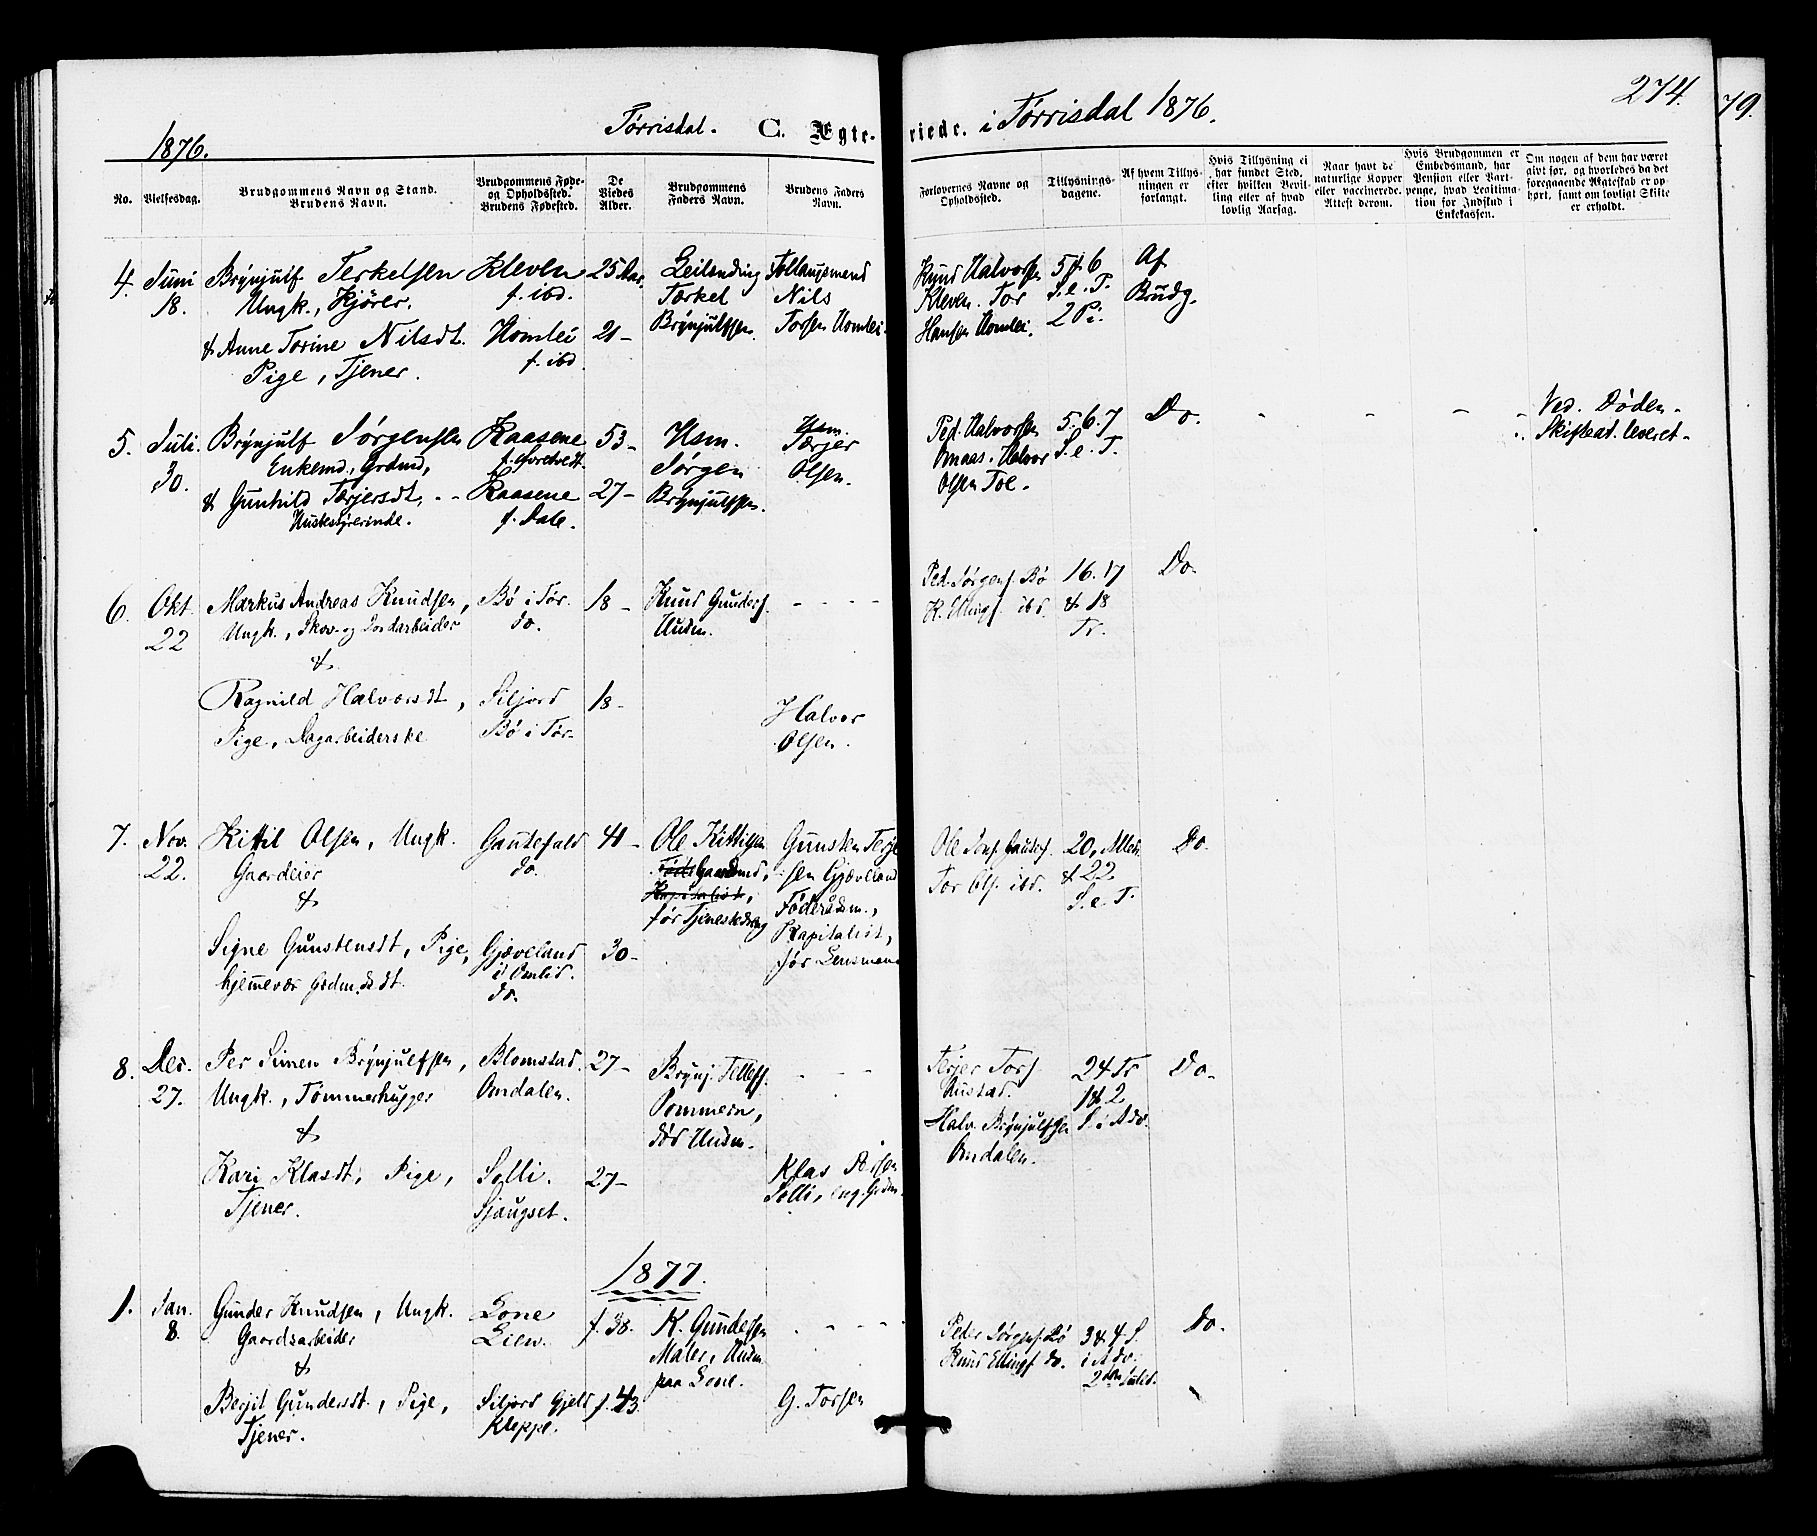 1876.
Tørrisdal.
C. Ægte-
viede. i Tørrisdal 1876.
274.
79.
No.
Vielsesdag.
Brudgommens Navn og Stand.
Brudens Navn.
Brudgommens Føde-
og Opholdssted.
Brudens Fødested.
De
Viedes
Alder.
Brudgommens
Faders Navn.
Brudens Faders
Navn.
Forlovernes Navne og
Opholdssted.
Tillysnings-
dagene.
Af hvem Tillys-
ningen er
forlangt.
Hvis Tillysning ei
har fundet Sted,
efter hvilken Bevil-
ling eller af hvad
lovlig Aarsag.
Naar havt de
naturlige Kopper
eller vaccinerede.
Attest derom.
Hvis Brudgommen er
Embedsmand, har
Pension eller Vart-
penge, hvad Legitima-
tion for Indskud i
Enkekassen.
Om nogen af dem har været
givt før, og hvorledes da det
foregaaende Ægteskab er op-
hørt, samt om lovligt Skifte
er erholdt.
4.
Juni
18.
Brynjulf Terkelsen
Ungk., Kjører.
& Anne Torine Nilsdt.
Pige, Tjener.
Kleven
f. ibd.
Homlei
f. ibd.
25 Aar
21 -
Leilending
Tærkel
Brynjulfsen
Nils
Torsen Homlei.
Knud Halvorsen
Kleven. Tor
Hansen Homlei.
5 & 6
S. e. T.
2 Pi.
Af
Brudg.
5.
Juli.
30.
Brynjulf Jørgensen
Enkemd., Grdmd,
& Gunhild Tærjersdt, - -
Huskestyrerinde.
Raasene
Raasene
f. Dale.
53 -
27 -
Husm.
Jørgen
Brynjulfsen.
Husm.
Tærjer
Olsen.
Ped. Halvorsen
Omaas. Halvor
Olsen Toe.
5. 6. 7
S. e. T.
Do.
Ved Døden.
Skifteat. leveret.
6.
Okt.
22
Markus Andreas Knudsen,
Ungk., Skov- og Jordarbeider
&
Ragnild Halvorsdt,
Pige, Dagarbeiderske
Bø i Tør.
do.
Siljord
Bø i Tør.
18 -
18 -
Knud Gunders.
Husm.
- - - -
Halvor
Olsen.
Ped. Jørgens. Bø
K. Ellingf. ibd.
16. 17
& 18
Tr.
Do.
7.
Nov.
22.
Kittil Olsen, Ungk.
Gaardeier
&
Signe Gunstensdt, Pige,
hjemmevær Grdm.ds.dt.
Gautefald
do.
Gjæveland
i Omlid.
do.
41 -
30 -
Ole Kittilsen
Gaardmd,
Kapitalist,
før Tjenestedreng
Gunsten Terje
sen Gjæveland
Føderådsm.,
Kapitalist,
før Lensmand
Tor Ols. ibd.
20, Alleh.
& 22.
S. e. T.
Do.
8.
Des.
27.
Per Simen Brynjulfsen,
Ungk., Tømmerhugger
&
Kari Klasdt, Pige,
Tjener.
Blomstad.
Omdalen.
Solli.
Sjaugset.
27 -
27 -
Brynj. Tellefs.
Pommern,
død Husm.
- - - -
Klas Persen
Solli, eng. Grdm.
Terjer Tors.
Rustad.
Halv. Brynjulfsen
Omdalen.
24 Tr
1 & 2
S. i Adv.
Do.
1877.
1.
Jan.
8.
Gunder Knudsen, Ungk.
Gaardsarbeider
&
Berjit Gundersdt., Pige,
Tjener.
Lone
Lien.
Siljord Gjeld
Kleppe.
f. 38.
f. 43.
K. Gundersen
Maler, Husm.
paa Lone.
- - - -
G. Torsen
Peder Jørgens. Bø
Knud Ellings. do.
3 & 4 S.
i Adv.
2den Juled.
Do.